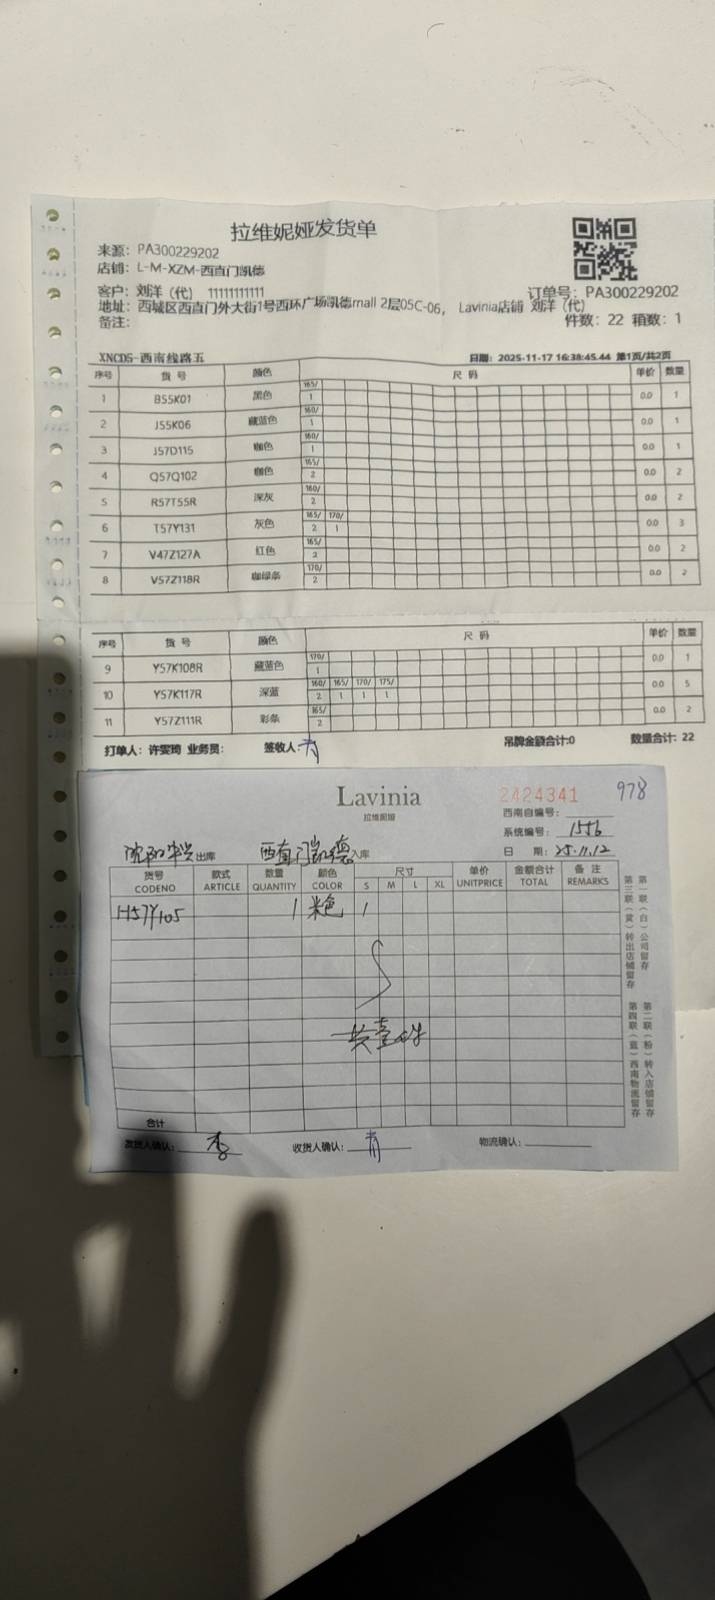 拉维妮娅发货单
来源: PA300229202
店铺: L-M-XZM-西直门凯德
客户: 刘洋 (代) 11111111111
订单号: PA300229202
地址: 西城区西直门外大街1号西环广场凯德mall 2层05C-06, Lavinia店铺 刘洋 (代)
备注:
件数: 22 箱数: 1
XNCDS-西南线路五
日期: 2025-11-17 16:38:45.44 第1页/共2页
序号 货号 颜色 尺码 单价 数量
165/
1 B55K01 黑色 1 0.0 1
160/
2 J55K06 藏蓝色 1 0.0 1
160/
3 J57D115 咖色 1 0.0 1
165/
4 Q57Q102 咖色 2 0.0 2
160/
5 R57T55R 深灰 2 0.0 2
165/ 170/
6 T57Y131 灰色 2 1 0.0 3
165/
7 V47Z127A 红色 2 0.0 2
170/
8 V57Z118R 咖绿条 2 0.0 2
序号 货号 颜色 尺码 单价 数量
170/
9 Y57K108R 藏蓝色 1 0.0 1
160/ 165/ 170/ 175/
10 Y57K117R 深蓝 2 1 1 1 0.0 5
165/
11 Y57Z111R 彩条 2 0.0 2
打单人: 许雯琦 业务员: 签收人:
吊牌金额合计:0 数量合计: 22
Lavinia
拉维妮娅
2424341 978
西南自编号:
系统编号: 1556
出库 西直门凯德 入库
日 期: 25.11.12
货号 款式 数量 颜色 尺寸 单价 金额合计 备注
CODENO ARTICLE QUANTITY COLOR S M L XL UNITPRICE TOTAL REMARKS
H57Y105 1 米色 1
共壹件
合计
发货人确认: 收货人确认: 物流确认:
第一联(白)公司留存
第二联(粉)转入店铺留存
第三联(黄)转出店铺留存
第四联(蓝)西南物流留存